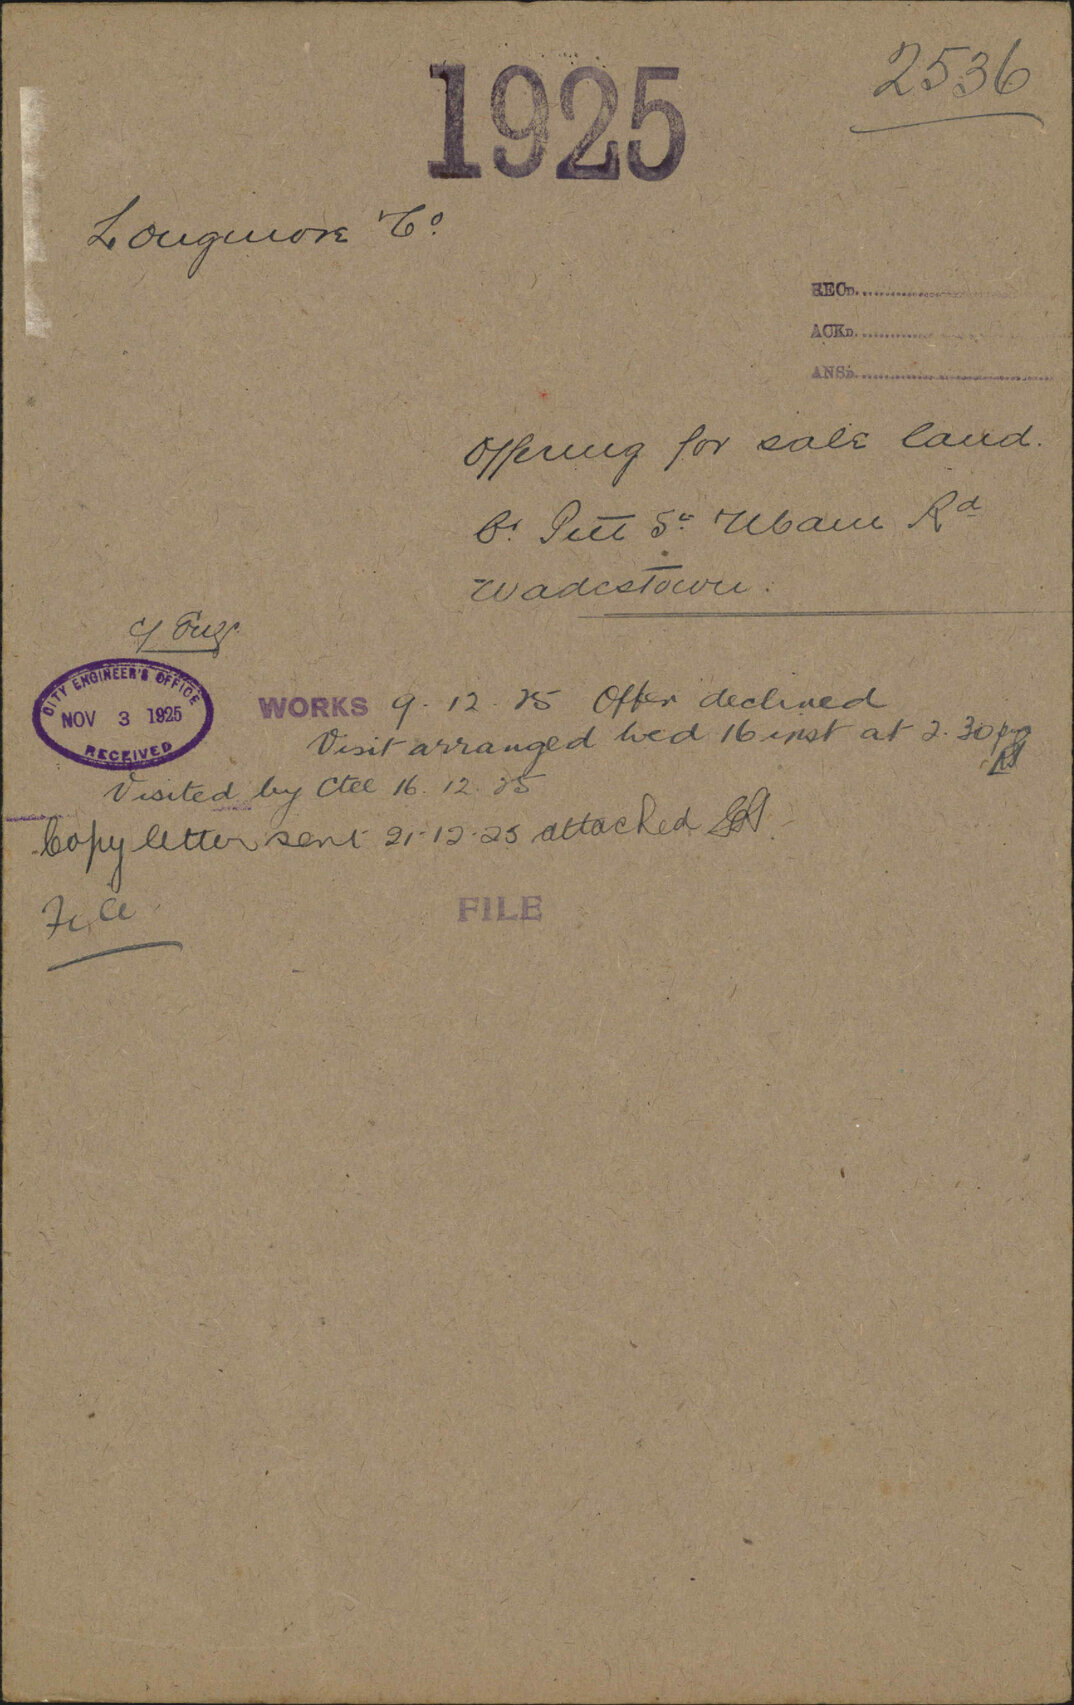 1925
2536
Longmore & Co.
RECD.
ACKD.
ANSD.
Offering for sale land.
Cr Pitt St Weld Rd
Wadestown.
C/ Engr
CITY ENGINEER'S OFFICE
NOV 3 1925
RECEIVED
WORKS 9. 12. 25 Offer declined
Visit arranged Wed 16 inst at 2.30 pm
Visited by Ctee 16. 12. 25
Copy letter sent 21-12-25 attached
File
FILE